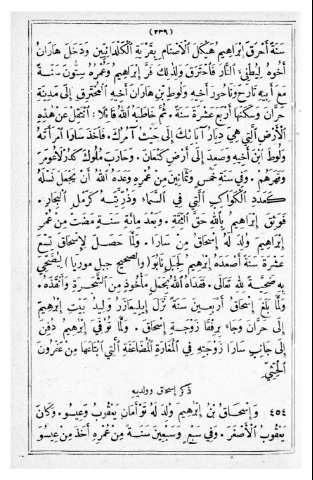 (٣٣٩)
سَنَةً أَحْرَقَ إِبْرَاهِيمُ هَيْكَلَ الْأَصْنَامِ بِقَرْيَةِ الْكَلْدَانِيِّينَ وَدَخَلَ هَارَانُ
أَخُوهُ لِيُطْفِئَ النَّارَ فَاحْتَرَقَ وَلِذٰلِكَ فَرَّ إِبْرَاهِيمُ وَعُمْرُهُ سِتُّونَ سَنَةً
مَعَ أَبِيهِ تَارَحَ وَنَاحُورَ أَخِيهِ وَلُوطِ بْنِ هَارَانَ أَخِيهِ الْمُحْتَرِقِ إِلَى مَدِينَةِ
حَرَّانَ وَسَكَنَهَا أَرْبَعَ عَشْرَةَ سَنَةً. ثُمَّ خَاطَبَهُ اللهُ قَائِلًا: اُنْتَقِلْ عَنْ هٰذِهِ
الْأَرْضِ الَّتِي هِيَ دِيَارُ آبَائِكَ إِلَى حَيْثُ آمُرُكَ. فَأَخَذَ سَارَا امْرَأَتَهُ
وَلُوطَ ابْنَ أَخِيهِ وَصَعِدَ إِلَى أَرْضِ كَنْعَانَ. وَحَارَبَ مُلُوكَ كَدَرْلَاعُومَرَ
وَقَهَرَهُمْ. وَفِي سَنَةِ خَمْسٍ وَثَمَانِينَ مِنْ عُمْرِهِ وَعَدَهُ اللهُ أَنْ يَجْعَلَ نَسْلَهُ
كَعَدَدِ الْكَوَاكِبِ الَّتِي فِي السَّمَاءِ وَذُرِّيَّتَهُ كَرَمْلِ الْبِحَارِ.
فَوَثِقَ إِبْرَاهِيمُ بِاللهِ حَقَّ الثِّقَةِ. وَبَعْدَ مِائَةِ سَنَةٍ مَضَتْ مِنْ عُمْرِ
إِبْرَاهِيمَ وُلِدَ لَهُ إِسْحَاقُ مِنْ سَارَا. وَلَمَّا حَصَلَ لِإِسْحَاقَ تِسْعَ
عَشْرَةَ سَنَةً أَصْعَدَهُ إِبْرَهِيمُ لِجَبَلِ نَابُو (والصحيح جبل موريا) لِيُضَحِّيَ
بِهِ ضَحِيَّةً لِلهِ تَعَالَى. فَفَدَاهُ اللهُ بِحَمَلٍ مَأْخُوذٍ مِنَ الشَّجَرَةِ وَأَنْقَذَهُ.
وَلَمَّا بَلَغَ إِسْحَاقُ أَرْبَعِينَ سَنَةً نَزَلَ إِيلِيعَازَرُ وَلِيدُ بَيْتِ إِبْرَهِيمَ
إِلَى حَرَّانَ وَجَاءَ بِرِفْقَا زَوْجَةِ إِسْحَاقَ. وَلَمَّا تُوُفِّيَ إِبْرَهِيمُ دُفِنَ
إِلَى جَانِبِ سَارَا زَوْجَتِهِ فِي الْمَغَارَةِ الْمُضَاعَفَةِ الَّتِي ابْتَاعَهَا مِنْ عَفْرُونَ
الْحِثِّيِّ
ذكر إسحاق وولديه
٤٥٤ وَإِسْحَاقُ بْنُ إِبْرَهِيمَ وُلِدَ لَهُ تَوْأَمَانِ يَعْقُوبُ وَعِيسُو. وَكَانَ
يَعْقُوبُ الْأَصْغَرَ. وَفِي سَبْعٍ وَسَبْعِينَ سَنَةً مِنْ عُمْرِهِ أَخَذَ مِنْ عِيسُو